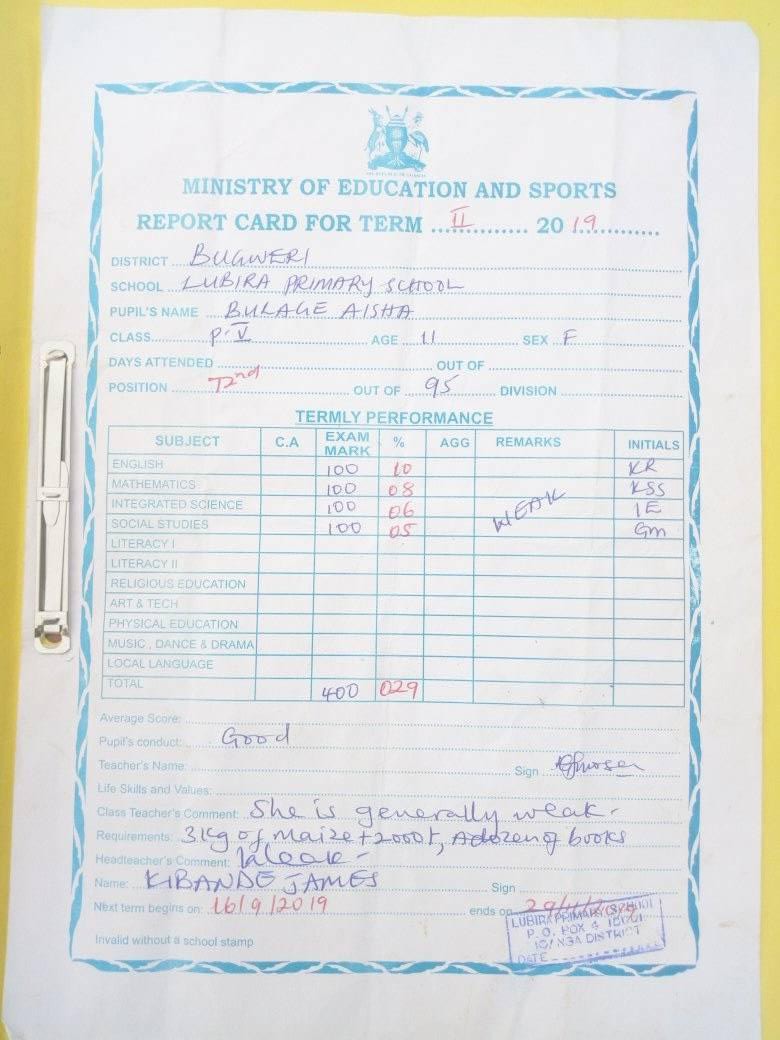 THE REPUBLIC OF UGANDA
MINISTRY OF EDUCATION AND SPORTS
REPORT CARD FOR TERM II 2019
DISTRICT BUGWERI
SCHOOL LUBIRA PRIMARY SCHOOL
PUPIL'S NAME BULAGE AISHA
CLASS P.V AGE 11 SEX F
DAYS ATTENDED OUT OF
POSITION 72nd OUT OF 95 DIVISION
TERMLY PERFORMANCE
SUBJECT C.A EXAM MARK % AGG REMARKS INITIALS
ENGLISH 100 10 KR
MATHEMATICS 100 08 KSS
INTEGRATED SCIENCE 100 06 WEAK IE
SOCIAL STUDIES 100 05 GM
LITERACY I
LITERACY II
RELIGIOUS EDUCATION
ART & TECH
PHYSICAL EDUCATION
MUSIC , DANCE & DRAMA
LOCAL LANGUAGE
TOTAL 400 029
Average Score:
Pupil's conduct: Good
Teacher's Name: Sign
Life Skills and Values:
Class Teacher's Comment: She is generally weak.
Requirements: 3kg of maize + 2000/=, A dozen of books
Headteacher's Comment: Weak
Name: KIBANDE JAMES Sign
Next term begins on: 16/9/2019 ends on
Invalid without a school stamp
LUBIRA PRIMARY SCHOOL
P. O. BOX 4 IDUDI
DISTRICT
DATE